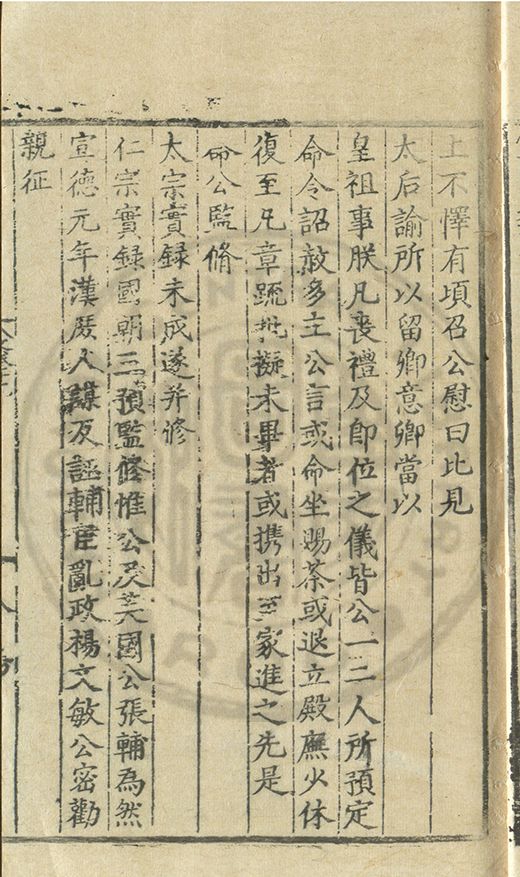 上不懌有頃召公慰曰比見
太后諭所以留卿意卿當以
皇祖事朕凡喪禮及即位之儀皆公一二人所預定
命令詔赦多立公言或命坐賜茶或退立殿廡少休
復至凡章疏批擬未畢者或携出至家進之先是
命公監脩
太宗實録未成遂并修
仁宗實録國朝三預監修惟公及英國公張輔為然
宣德元年漢庶人謀反誣輔臣亂政楊文敏公密勸
親征